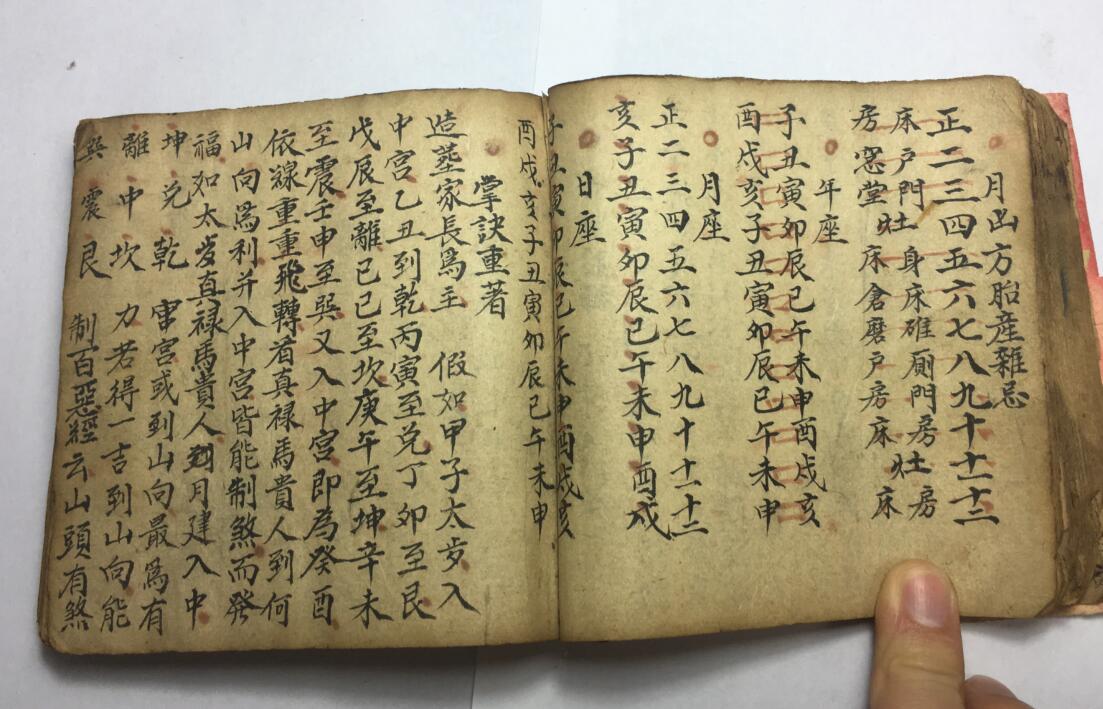 月凶方胎產雜忌
正二三四五六七八九十十一十二
床戶門灶身床碓厠門房灶房
房窓堂灶床倉磨戶房床床
年座
子丑寅卯辰巳午未申酉戌亥
酉戌亥子丑寅卯辰巳午未申
月座
正二三四五六七八九十十一十二
亥子丑寅卯辰巳午未申酉戌
日座
子丑寅卯辰巳午未申酉戌亥
酉戌亥子丑寅卯辰巳午未申
掌訣重著
造葬家長為主 假如甲子太歩入
中宮乙丑到乾丙寅至兌丁卯至艮
戊辰至離己巳至坎庚午至坤辛未
至震壬申至巽又入中宮即為癸酉
依線重重飛轉看真禄馬貴人到何
山向為利并入中宮皆能制煞而發
福如太岁真禄馬貴人到月建入中
坤兌乾 宮或到山向最為有
離中坎 力若得一吉到山向能
巽震艮 制百惡經云山頭有煞